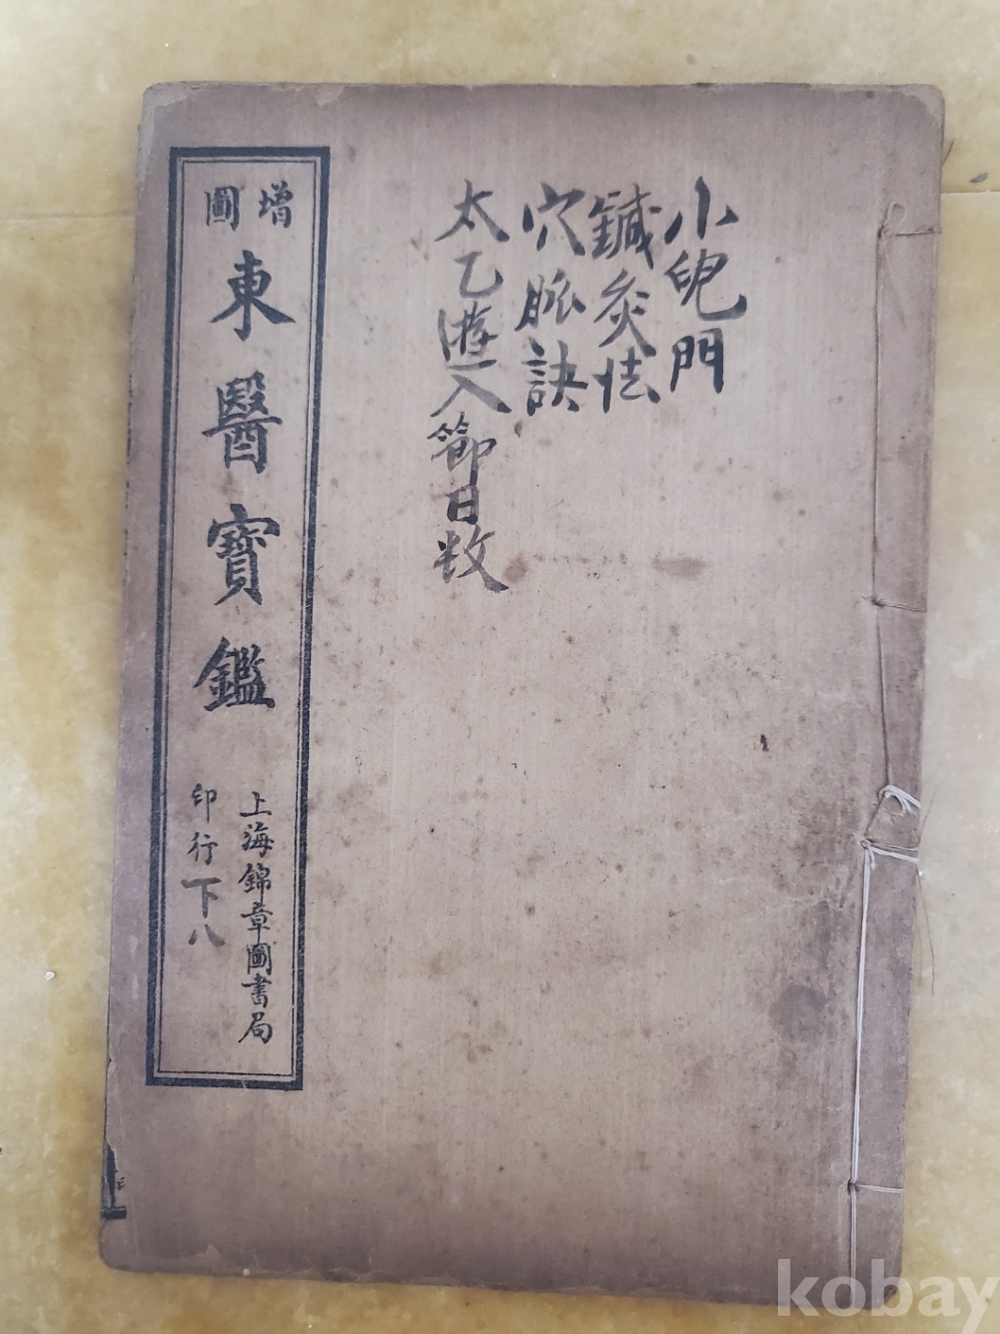 小兒門
鍼灸法
穴脈訣
太乙遊八節日数
增圖
東醫寶鑑
上海錦章圖書局
印行
下八
kobay